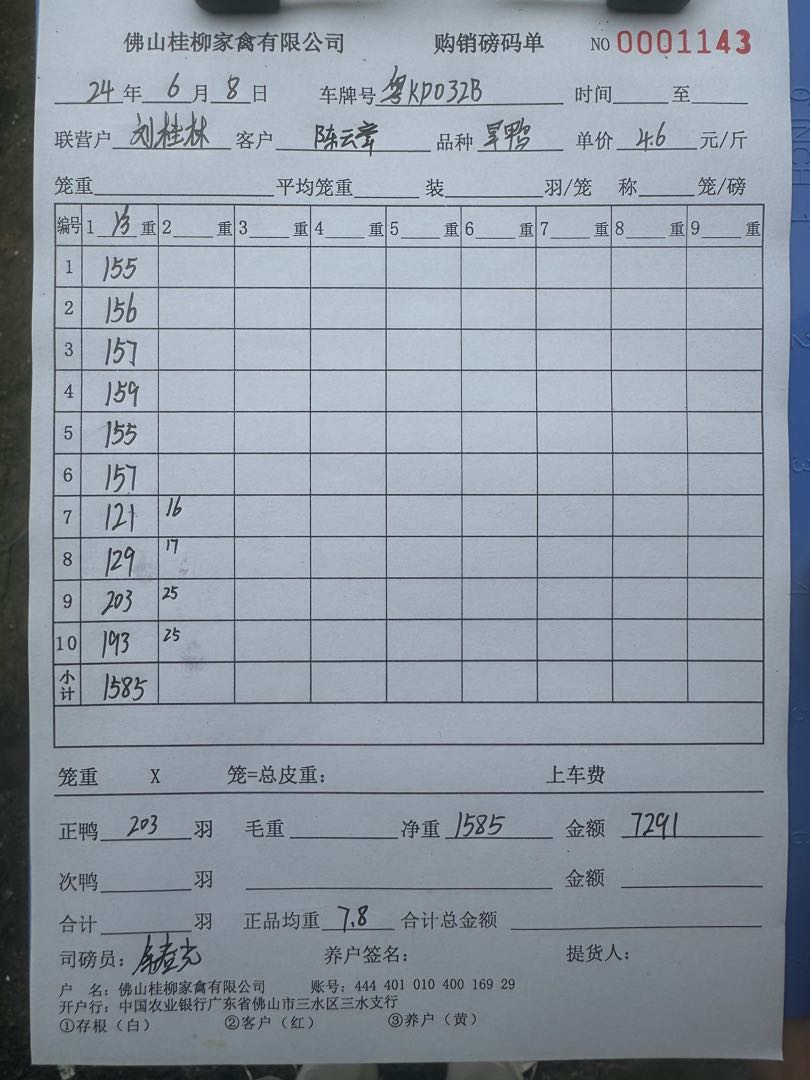 佛山桂柳家禽有限公司 购销磅码单 NO 0001143
24年 6月 8日 车牌号 粤KP032B 时间 至
联营户 刘桂林 客户 陈云章 品种 旱鸭 单价 4.6 元/斤
笼重 平均笼重 装 羽/笼 称 笼/磅
编号 1 净 重 2 重 3 重 4 重 5 重 6 重 7 重 8 重 9 重
1 155
2 156
3 157
4 159
5 155
6 157
7 121 16
8 129 17
9 203 25
10 193 25
小计 1585
笼重 X 笼=总皮重: 上车费
正鸭 203 羽 毛重 净重 1585 金额 7291
次鸭 羽 金额
合计 羽 正品均重 7.8 合计总金额
司磅员: 养户签名: 提货人:
户 名: 佛山桂柳家禽有限公司 账号: 444 401 010 400 169 29
开户行: 中国农业银行广东省佛山市三水区三水支行
①存根（白） ②客户（红） ③养户（黄）